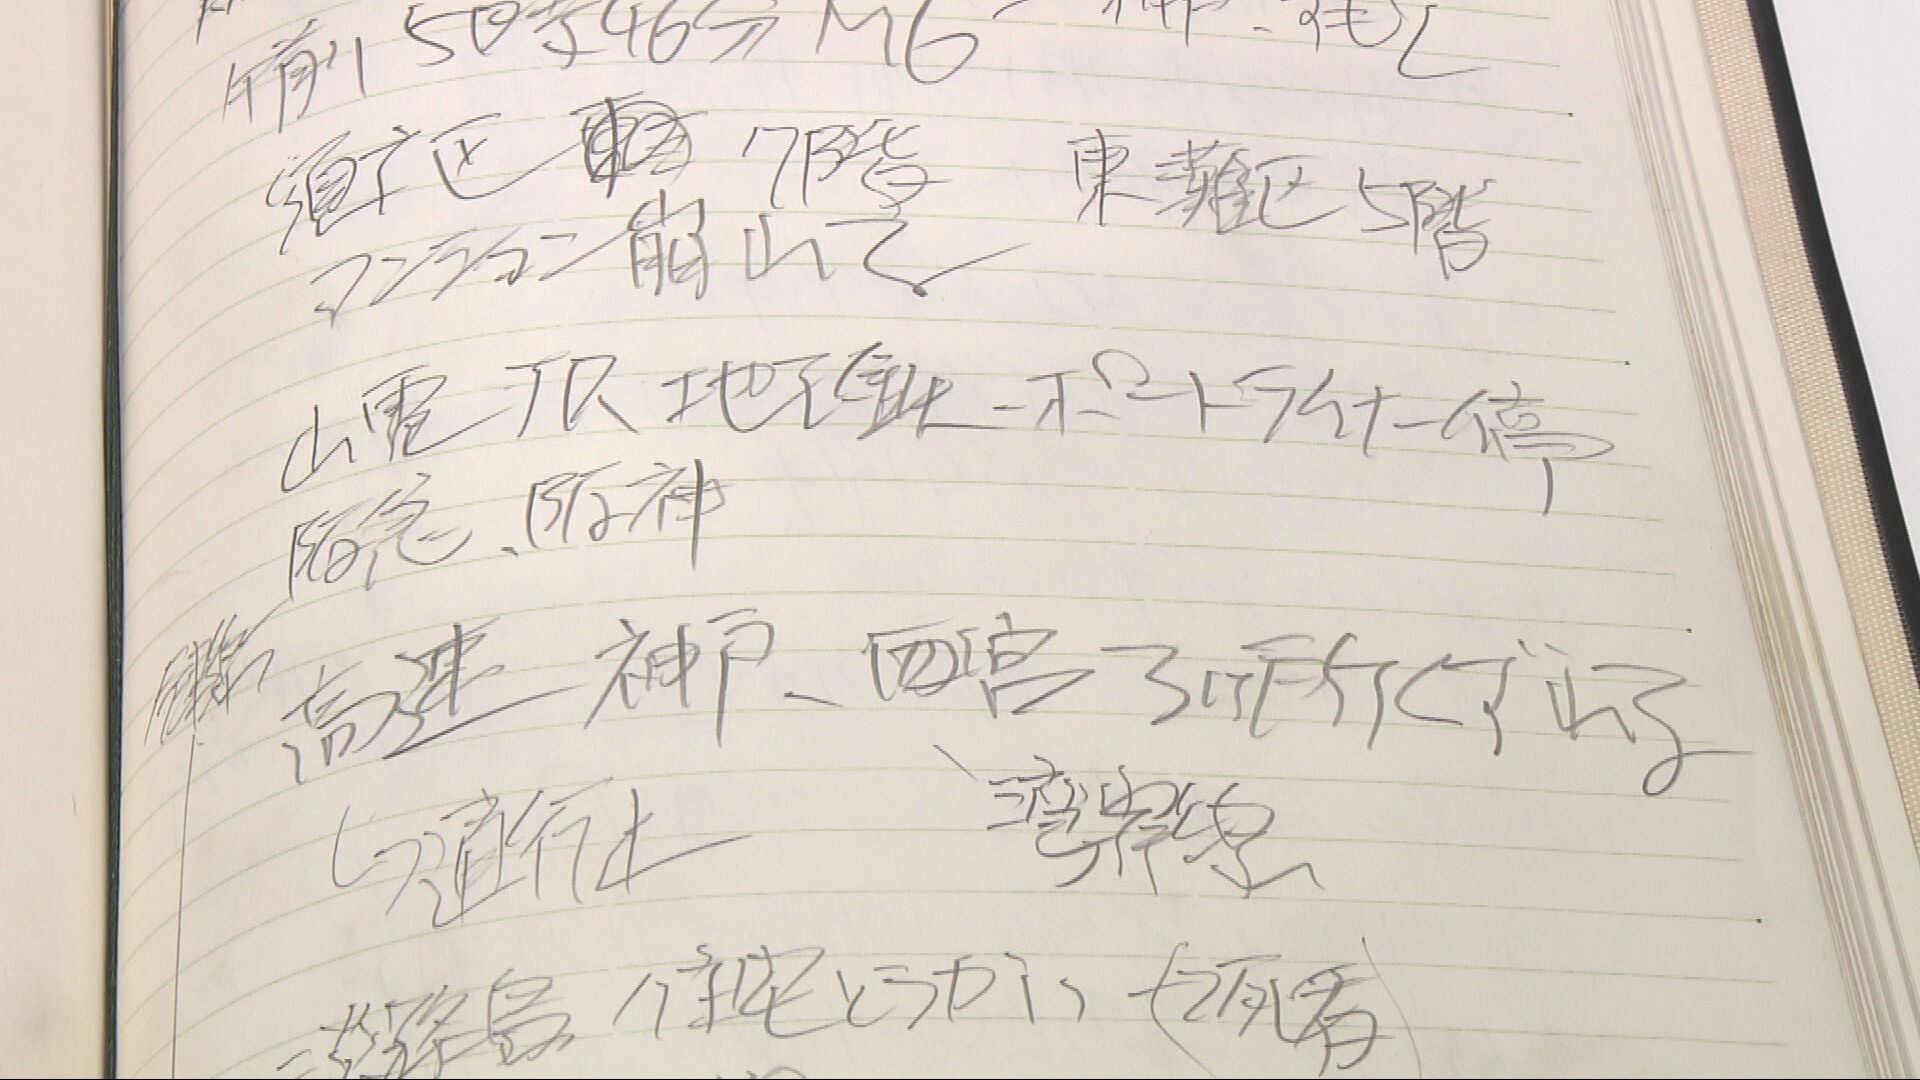 午前5時46分 M6 神戸
須磨区 7階 東灘区5階
マンション崩山て
山電 JR 地下鉄 ポートライナー停
阪急、阪神
高速 神戸、西宮 3ヶ所くずれる
通行止
湾岸
淡路島 住宅とうかい (2死者)